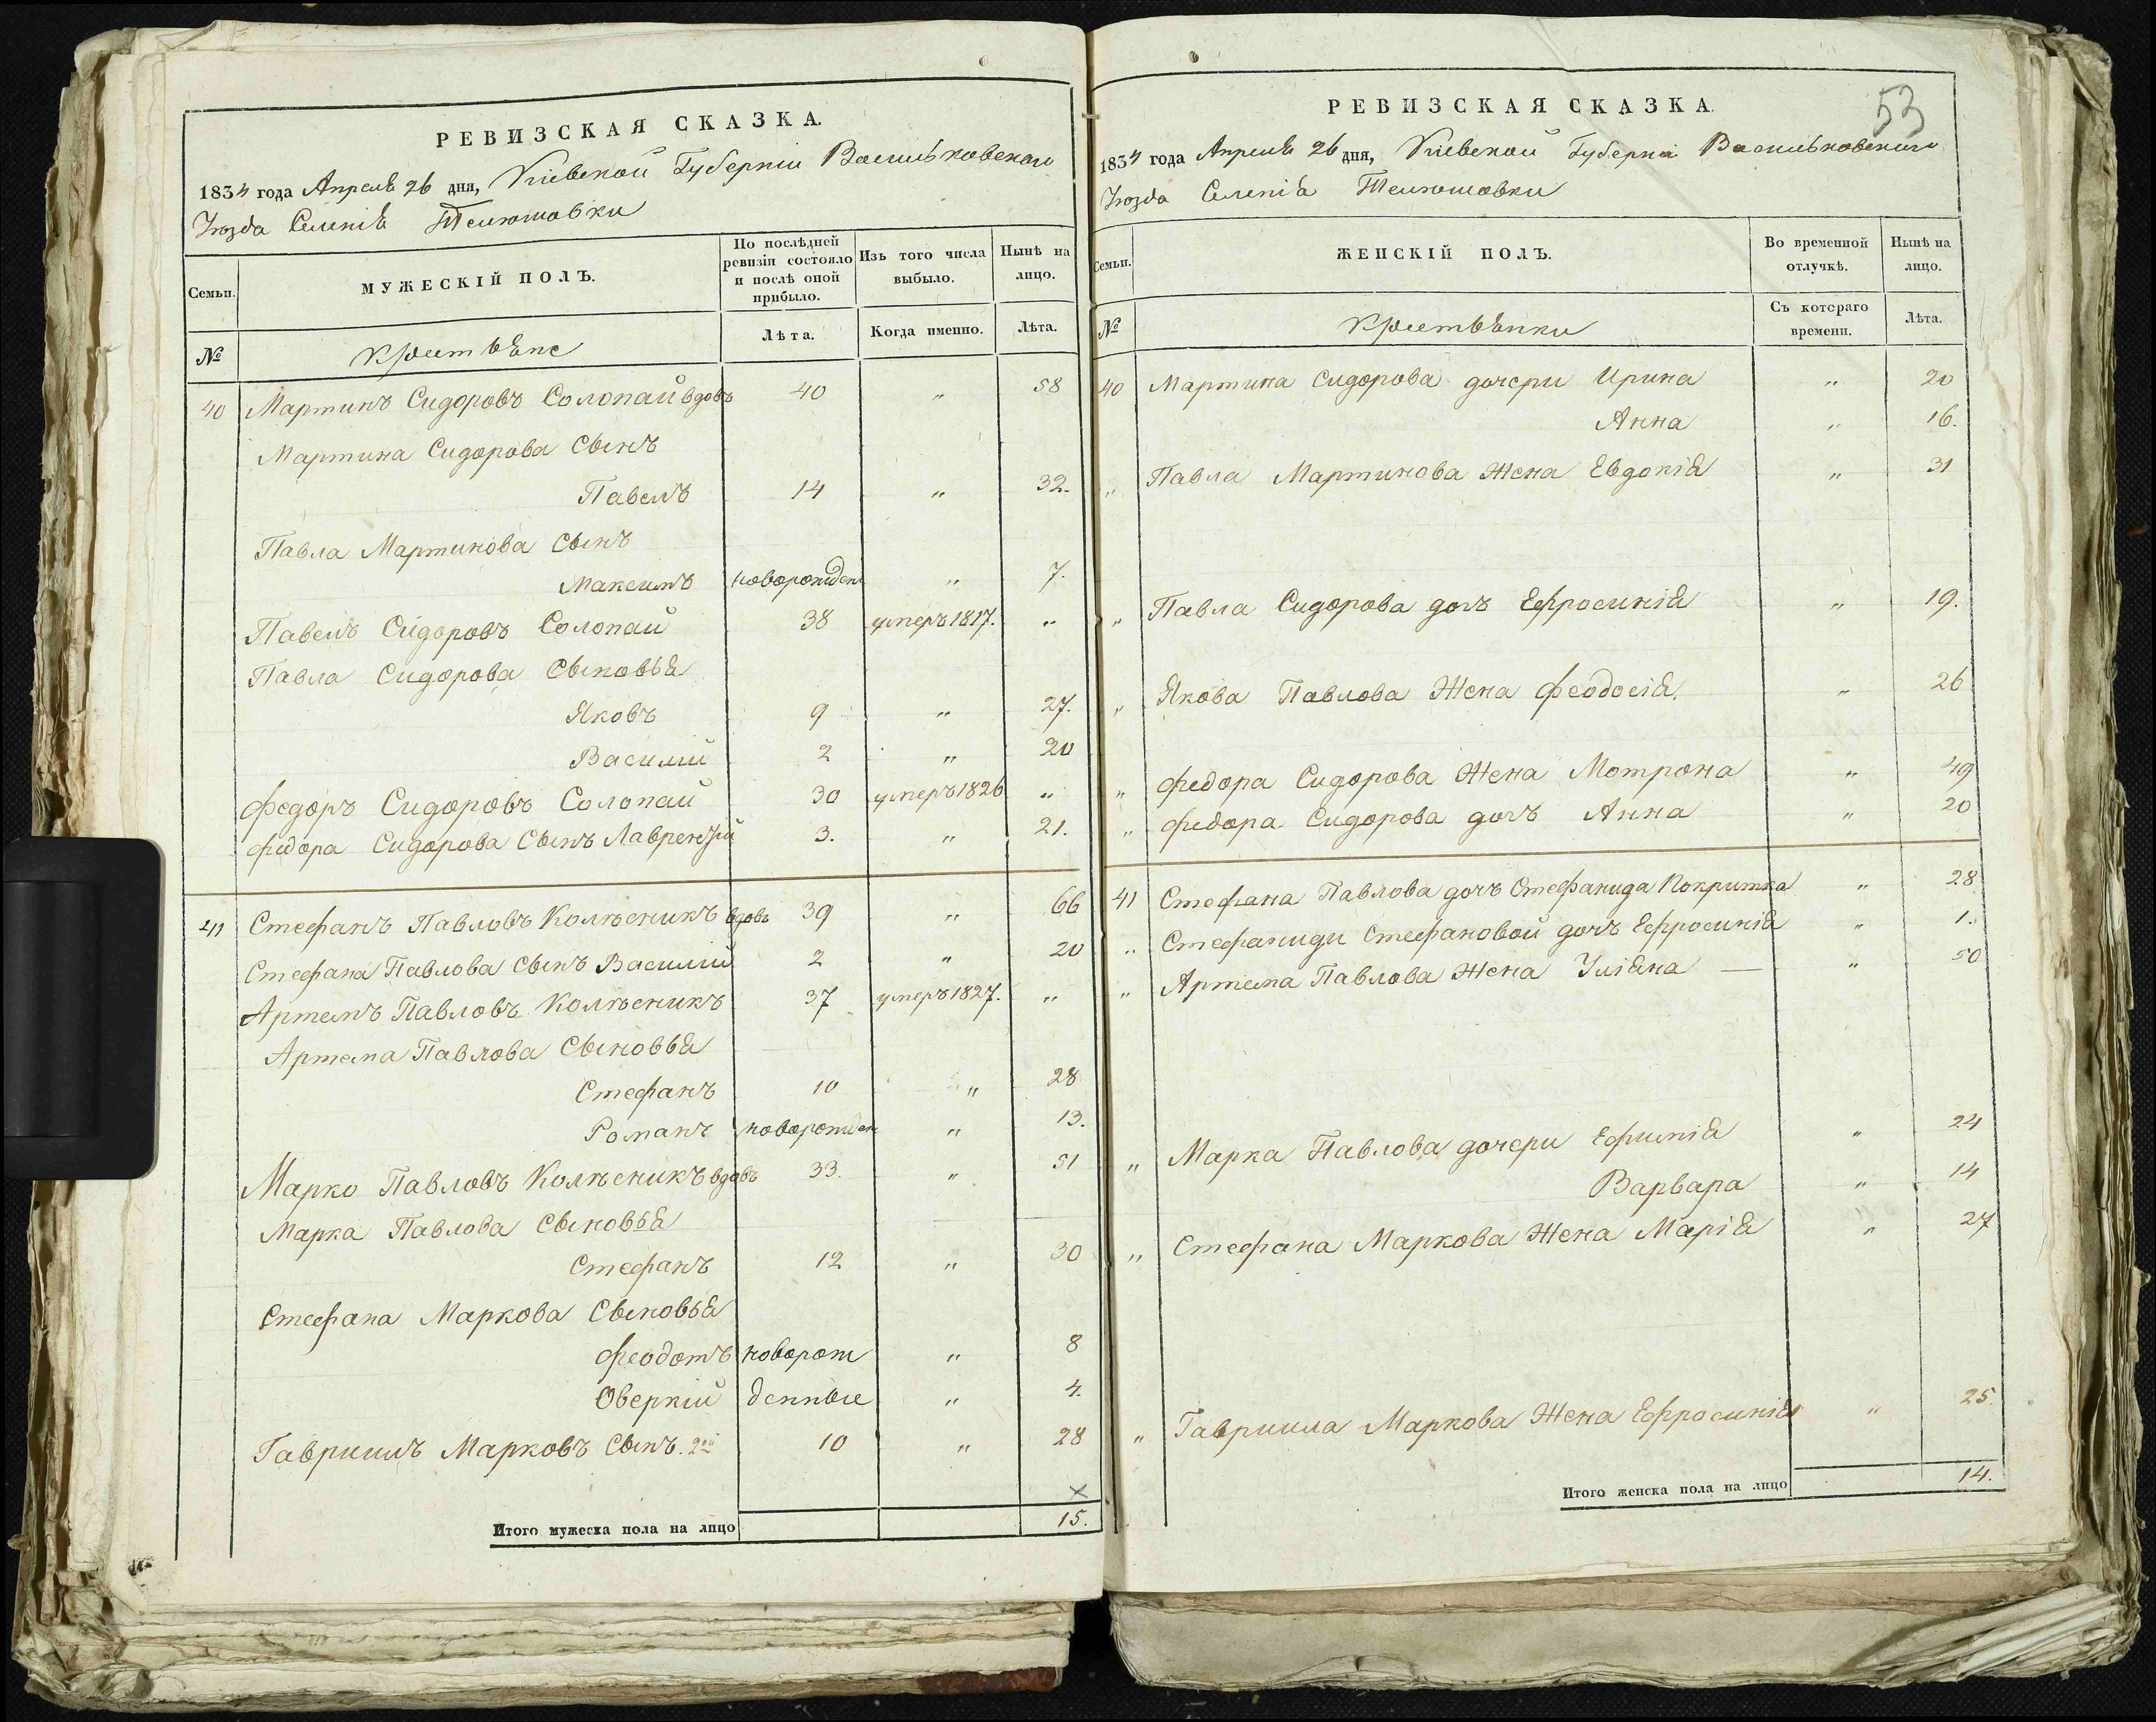 РЕВИЗСКАЯ СКАЗКА.
1834 года Апреля 26 дня, Кіевской Губерніи Васильковскаго
Уѣзда Селенія Телюшовки
Семьи. МУЖЕСКІЙ ПОЛЪ. По послѣдней ревизіи состояло и послѣ оной прибыло. Изъ того числа выбыло. Нынѣ на лицо.
№ Крестьяне Лѣта. Когда именно. Лѣта.
40 Мартинъ Сидоровъ Солопай вдовъ 40 „ 58
Мартина Сидорова Сынъ
Павелъ 14 „ 32.
Павла Мартинова Сынъ
Максимъ новорожден „ 7.
Павелъ Сидоровъ Солопай 38 умеръ 1817. „
Павла Сидорова Сыновья
Яковъ 9 „ 27.
Василий 2 „ 20
Федоръ Сидоровъ Солопай 30 умеръ 1826 „
Федора Сидорова Сынъ Лаврентій 3. „ 21.
41 Стефанъ Павловъ Колѣсникъ вдовъ 39 „ 66
Стефана Павлова Сынъ Василий 2 „ 20
Артемъ Павловъ Колѣсникъ 37 умеръ 1827. „
Артема Павлова Сыновья
Стефанъ 10 „ 28
Романъ новорожден „ 13.
Марко Павловъ Колѣсникъ вдовъ 33. „ 51
Марка Павлова Сыновья
Стефанъ 12 „ 30
Стефана Маркова Сыновья
Феодотъ новорож „ 8
Оверкій денные „ 4.
Гавриилъ Марковъ Сынъ 2й 10 „ 28
×
Итого мужеска пола на лицо 15.
53
РЕВИЗСКАЯ СКАЗКА.
1834 года Апреля 26 дня, Кіевской Губерніи Васильковскаго
Уѣзда Селенія Телюшовки
Семьи. ЖЕНСКІЙ ПОЛЪ. Во временной отлучкѣ. Нынѣ на лицо.
№ Крестьянки Съ котораго времени. Лѣта.
40 Мартина Сидорова дочери Ирина „ 20
Анна „ 16.
„ Павла Мартинова Жена Евдокія „ 31
„ Павла Сидорова дочъ Ефросинія „ 19.
„ Якова Павлова Жена Феодосія. „ 26
„ Федора Сидорова Жена Мотрона „ 49
„ Федора Сидорова дочъ Анна „ 20
41 Стефана Павлова дочъ Стефанида Покритка „ 28
„ Стефаниди Стефановой дочъ Ефросинія „ 1.
„ Артема Павлова Жена Уліяна — „ 50
„ Марка Павлова дочери Ефимія „ 24
Варвара „ 14
„ Стефана Маркова Жена Марія „ 27
„ Гавриила Маркова Жена Ефросинія „ 25
Итого женска пола на лицо 14.